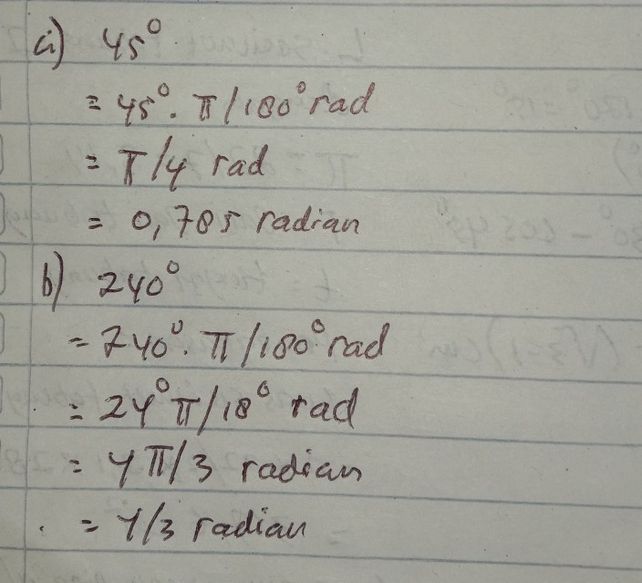 a) 45°
= 45°. π/180° rad
= π/4 rad
= 0,785 radian
b) 240°
= 240°. π/180° rad
= 24° π/18° rad
= 4 π/3 radian
= 4/3 radian